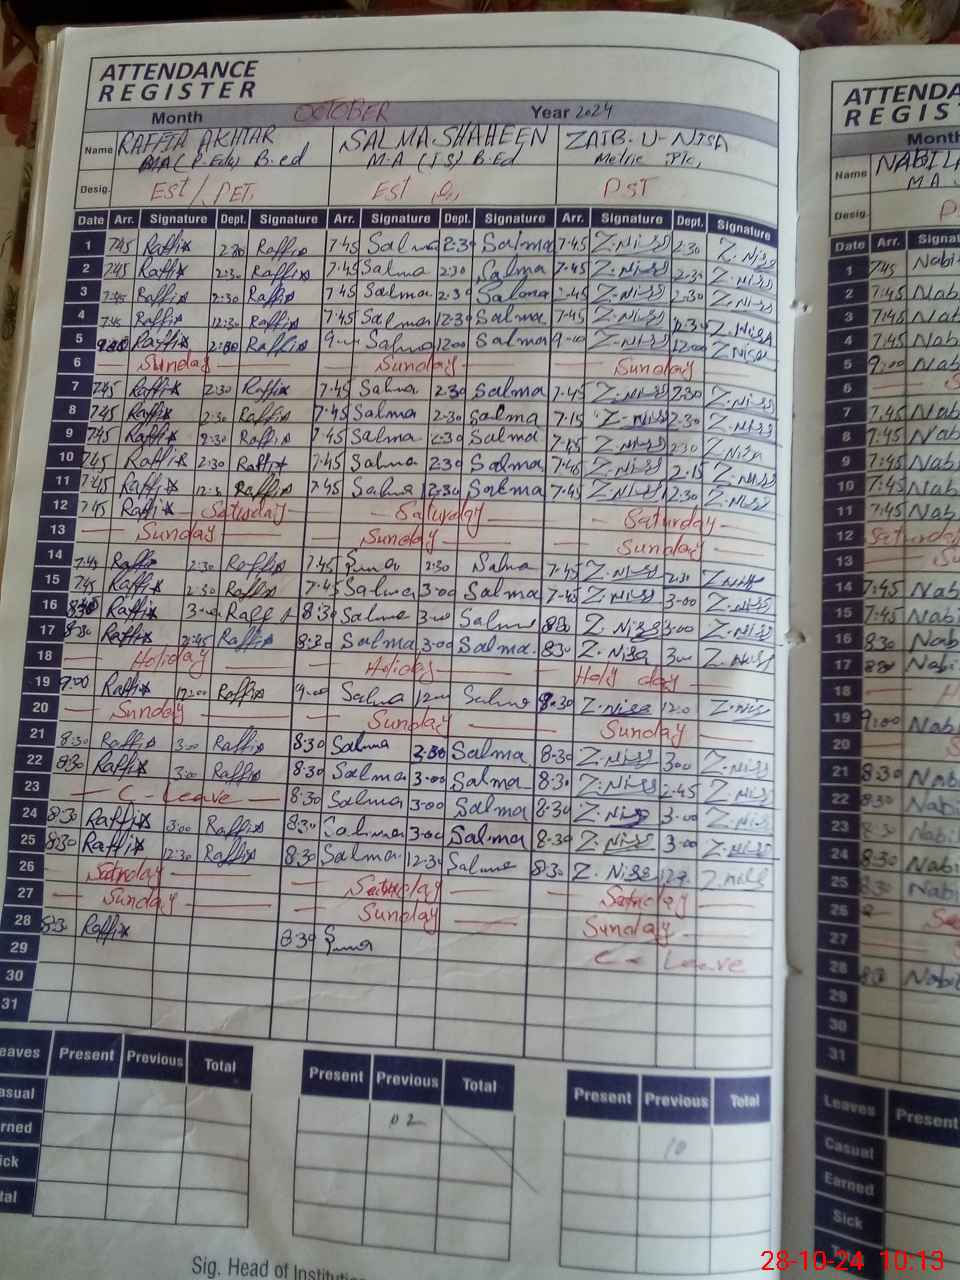 ATTENDANCE
REGISTER
Month OCTOBER Year 2024
Name RAFFIA AKHTAR SALMA SHAHEEN ZAIB-U-NISA
M.A (P.Edu) B.ed M.A (I.S) B.Ed Metric Ptc,
Desig. Est/PET, Est PST
Date Arr. Signature Dept. Signature Arr. Signature Dept. Signature Arr. Signature Dept. Signature
1 7:45 Raffia 2:30 Raffia 7:45 Salma 2:30 Salma 7:45 Z.Nisa 2:30 Z.Nisa
2 7:45 Raffia 2:30 Raffia 7:45 Salma 2:30 Salma 7:45 Z.Nisa 2:30 Z.Nisa
3 7:45 Raffia 2:30 Raffia 7:45 Salma 2:30 Salma 7:45 Z.Nisa 2:30 Z.Nisa
4 7:45 Raffia 12:30 Raffia 7:45 Salma 12:30 Salma 7:45 Z.Nisa 12:30 Z.Nisa
5 Raffia Raffia 9:00 Salma 12:00 Salma 9:00 Z.Nisa 12:00 Z.Nisa
6 Sunday Sunday Sunday
7 7:45 Raffia 2:30 Raffia 7:45 Salma 2:30 Salma 7:45 Z.Nisa 2:30 Z.Nisa
8 7:45 Raffia 2:30 Raffia 7:45 Salma 2:30 Salma 7:15 Z.Nisa 2:30 Z.Nisa
9 7:45 Raffia 2:30 Raffia 7:45 Salma 2:30 Salma 7:45 Z.Nisa 2:30 Z.Nisa
10 7:45 Raffia 2:30 Raffia 7:45 Salma 2:30 Salma 7:45 Z.Nisa 2:15 Z.Nisa
11 7:45 Raffia 12:30 Raffia 7:45 Salma 12:30 Salma 7:45 Z.Nisa 12:30 Z.Nisa
12 7:45 Raffia Saturday Saturday Saturday
13 Sunday Sunday Sunday
14 7:45 Raffia 2:30 Raffia 7:45 2:30 Salma 7:45 Z.Nisa 2:30 Z.Nisa
15 7:45 Raffia 2:30 Raffia 7:45 Salma 3:00 Salma 7:45 Z.Nisa 3:00 Z.Nisa
16 8:30 Raffia 3:00 Raffia 8:30 Salma 3:00 Salma 8:30 Z.Nisa 3:00 Z.Nisa
17 8:30 Raffia 2:45 Raffia 8:30 Salma 3:00 Salma 8:30 Z.Nisa 3:00 Z.Nisa
18 Holiday Holiday Holy day
19 9:00 Raffia 12:00 Raffia 9:00 Salma 12:00 Salma 8:30 Z.Nisa 12:0 Z.Nisa
20 Sunday Sunday Sunday
21 8:30 Raffia 3:00 Raffia 8:30 Salma 2:30 Salma 8:30 Z.Nisa 3:00 Z.Nisa
22 8:30 Raffia 3:00 Raffia 8:30 Salma 3:00 Salma 8:30 Z.Nisa 2:45 Z.Nisa
23 C-Leave 8:30 Salma 3:00 Salma 8:30 Z.Nisa 3:00 Z.Nisa
24 8:30 Raffia 3:00 Raffia 8:30 Salma 3:00 Salma 8:30 Z.Nisa 3:00 Z.Nisa
25 8:30 Raffia 12:30 Raffia 8:30 Salma 12:30 Salma 8:30 Z.Nisa Z.Nisa
26 Saturday Saturday Saturday
27 Sunday Sunday Sunday
28 8:30 Raffia 8:30 C-Leave
29
30
31
eaves Present Previous Total Present Previous Total Present Previous Total
asual 02 10
rned
ick
tal
Sig. Head of Institutio
ATTENDA
REGIST
Month
Name NABILA
M A
Desig. P
Date Arr. Signat
1 7:45 Nabi
2 7:45 Nab
3 7:45 Nab
4 7:45 Nab
5 9:00 Nab
6
7 7:45 Nab
8 7:45 Nab
9 7:45 Nabi
10 7:45 Nabi
11 7:45 Nab
12 Saturda
13 Su
14 7:45 Nab
15 7:45 Nab
16 8:30 Nab
17 Nabi
18 H
19 9:00 Nab
20 S
21 8:30 Nab
22 8:30 Nab
23 8:30 Nabi
24 8:30 Nabi
25 8:30 Nabi
26 Sa
27
28 Nabi
29
30
31
Leaves Present
Casual
Earned
Sick
28-10-24 10:13